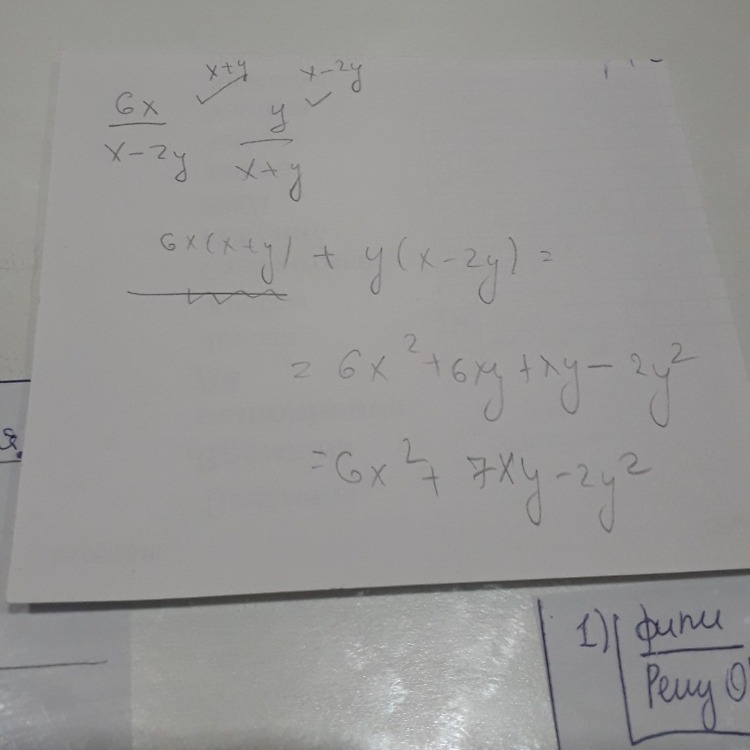 x+y x-2y
6x y
x-2y x+y
6x(x+y) + y(x-2y) =
= 6x² + 6xy + xy - 2y²
= 6x² + 7xy - 2y²
я.
1) фипи
Решу О